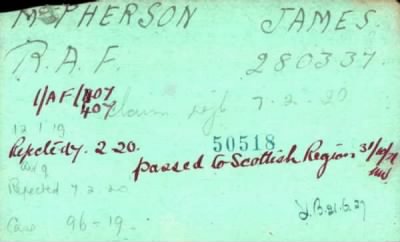 McPHERSON JAMES.
R.A.F. 280337.
1/AF/407
407
claim rejt 7-2-20
12.1.19
Rejected 7.2.20. 50518
passed to Scottish Region 31/10/21
Rejected 7.2.20
Case 96-19.
J.B. 21.6.27